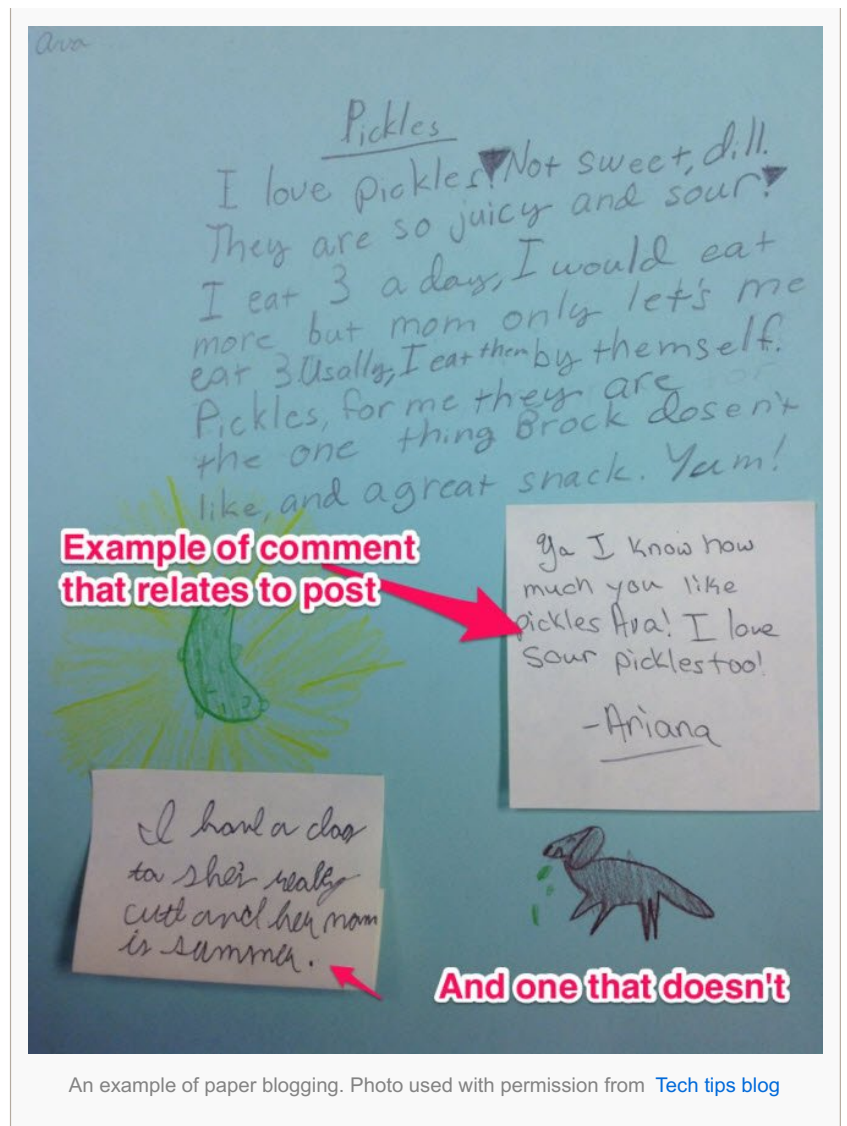 Ava
Pickles
I love pickles! Not sweet, dill.
They are so juicy and sour!
I eat 3 a day, I would eat
more but mom only let's me
eat 3 Usally, I eat them by themself.
Pickles, for me they are
the one thing Brock dosen't
like, and a great snack. Yum!
Example of comment
that relates to post
Ya I know how
much you like
pickles Ava! I love
Sour pickles too!
-Ariana
I have a dog
to she's really
cute and her nam
is summer.
And one that doesn't
An example of paper blogging. Photo used with permission from Tech tips blog